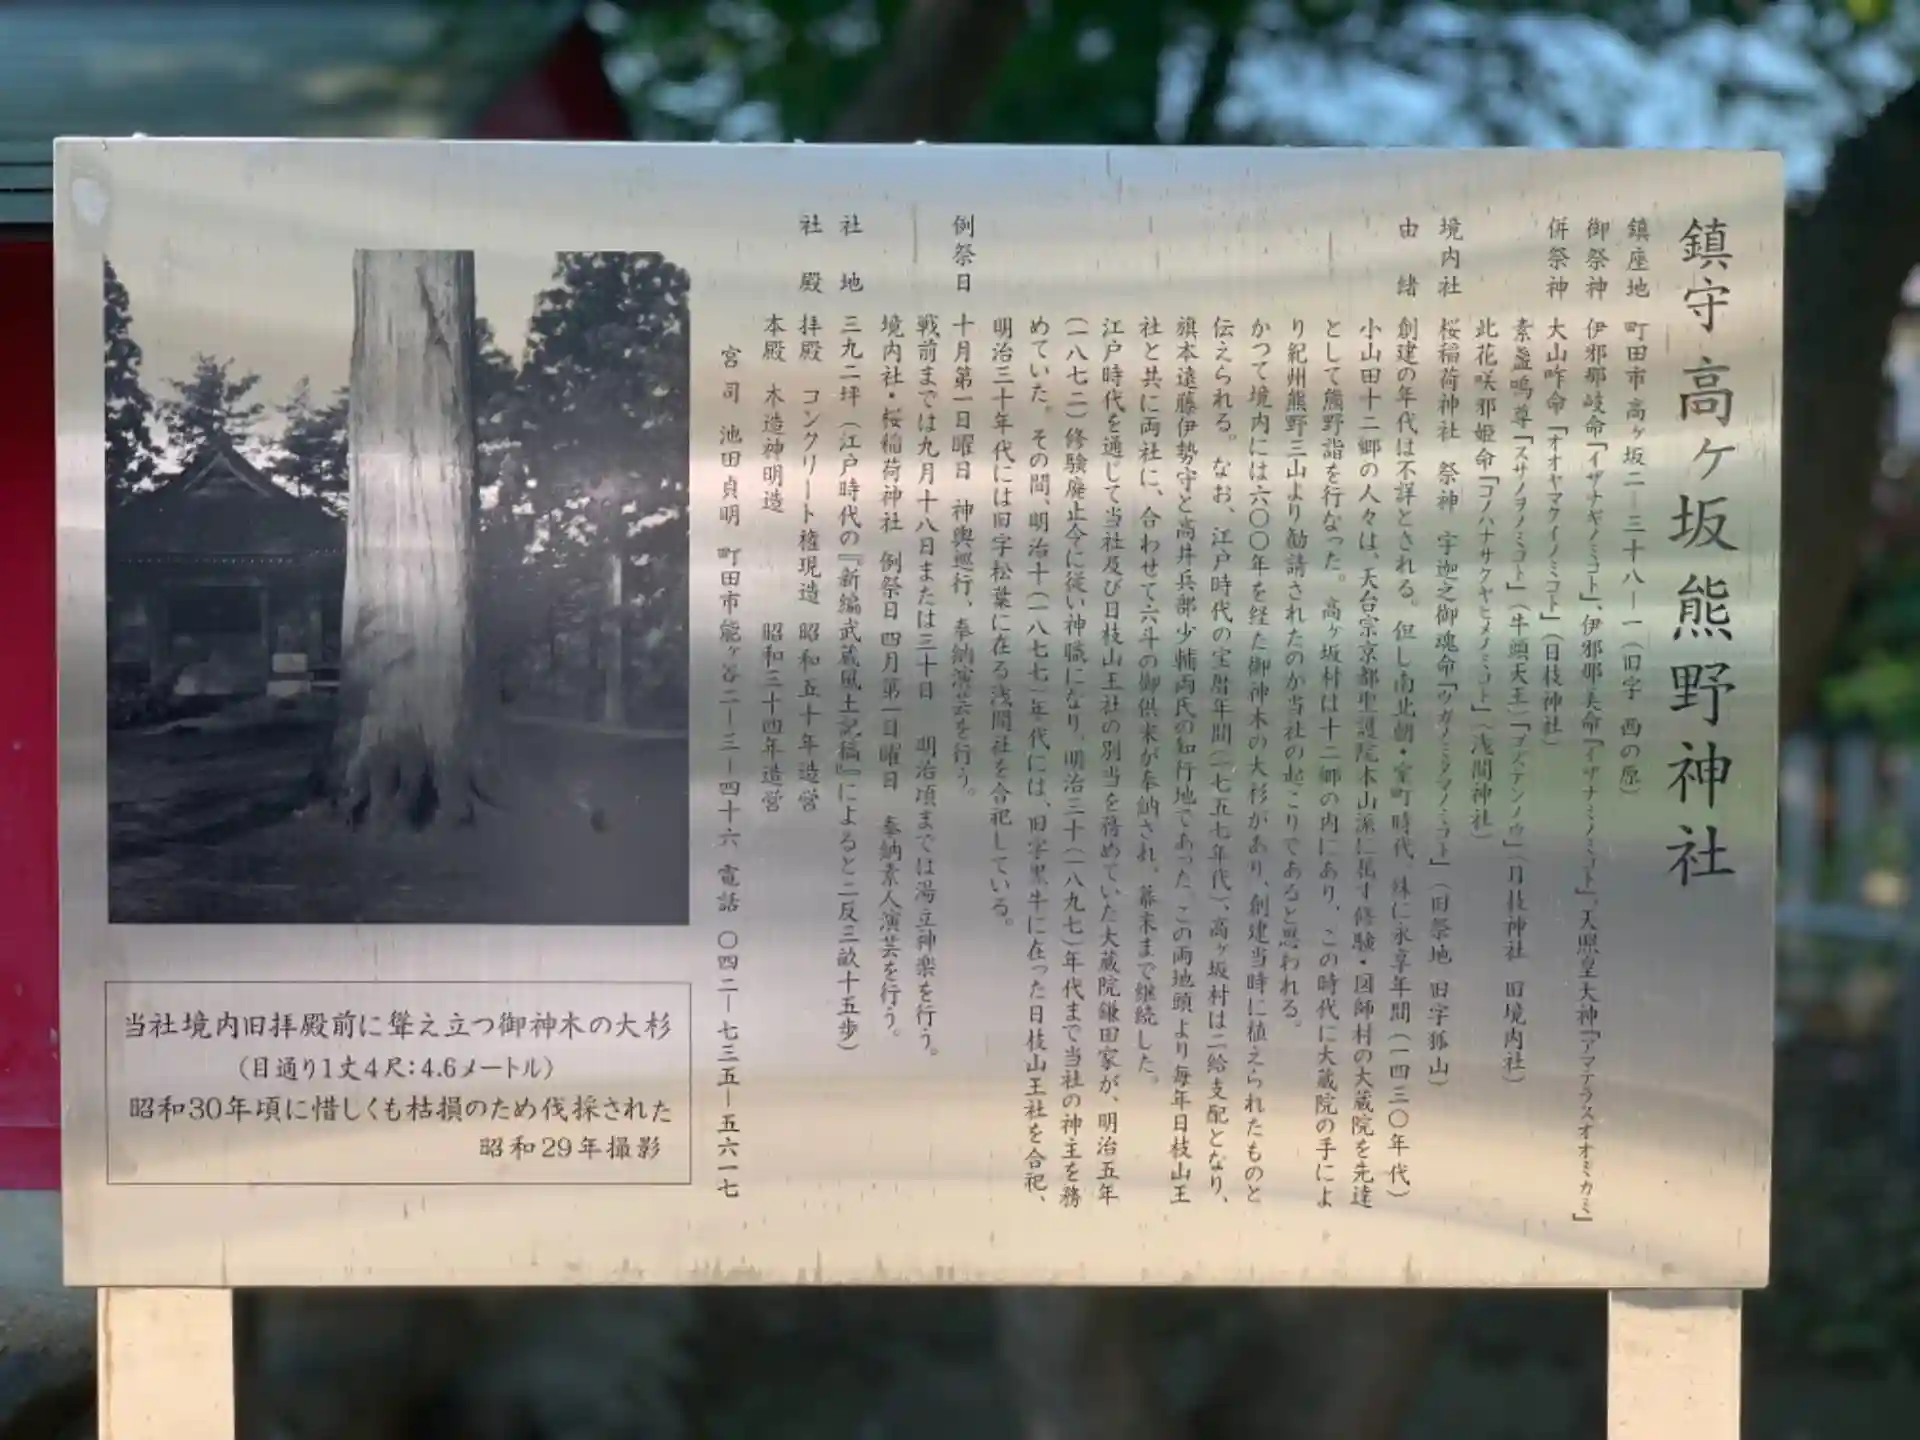 鎮守高ヶ坂熊野神社
鎮座地 町田市高ヶ坂二―三十八―一(旧字 西の原)
御祭神 伊邪那岐命「イザナギノミコト」、伊邪那美命「イザナミノミコト」、天照皇大神「アマテラスオオミカミ」
併祭神 大山咋命「オオヤマクイノミコト」(日枝神社)
素盞嗚尊「スサノヲノミコト」(牛頭天王)「ゴズテンノウ」(日枝神社 旧境内社)
此花咲邪姫命「コノハナサクヤヒメノミコト」(浅間神社)
境内社 桜稲荷神社 祭神 宇迦之御魂命「ウガノミタマノミコト」(旧祭地 旧字狐山)
由緒 創建の年代は不詳とされる。但し南北朝・室町時代、殊に永享年間(一四三〇年代)
小山田十二郷の人々は、天台宗京都聖護院本山派に属す修験・図師村の大蔵院を先達
として熊野詣を行なった。高ヶ坂村は十二郷の内にあり、この時代に大蔵院の手によ
り紀州熊野三山より勧請されたのが当社の起こりであると思われる。
かつて境内には六〇〇年を経た御神木の大杉があり、創建当時に植えられたものと
伝えられる。なお、江戸時代の宝暦年間(一七五七年代)、高ヶ坂村は二給支配となり、
旗本遠藤伊勢守と高井兵部少輔両氏の知行地であった。この両地頭より毎年日枝山王
社と共に両社に、合わせて六斗の御供米が奉納され、幕末まで継続した。
江戸時代を通じて当社及び日枝山王社の別当を務めていた大蔵院鎌田家が、明治五年
(一八七二)修験廃止令に従い神職になり、明治三十(一八九七)年代まで当社の神主を務
めていた。その間、明治十(一八七七)年代には、旧字黒牛に在った日枝山王社を合祀、
明治三十年代には旧字松葉に在る浅間社を合祀している。
例祭日 十月第一日曜日 神輿巡行、奉納演芸を行う。
戦前までは九月十八日または三十日 明治頃までは湯立神楽を行う。
境内社・桜稲荷神社 例祭日 四月第一日曜日 奉納素人演芸を行う。
社地 三九二坪(江戸時代の『新編武蔵風土記稿』によると二反三畝十五歩)
社殿 拝殿 コンクリート権現造 昭和五十年造営
本殿 木造神明造 昭和三十四年造営
宮司 池田貞明 町田市能ヶ谷二―三―四十六 電話 〇四二―七三五―五六一七
当社境内旧拝殿前に聳え立つ御神木の大杉
(目通り1丈4尺:4.6メートル)
昭和30年頃に惜しくも枯損のため伐採された
昭和29年撮影